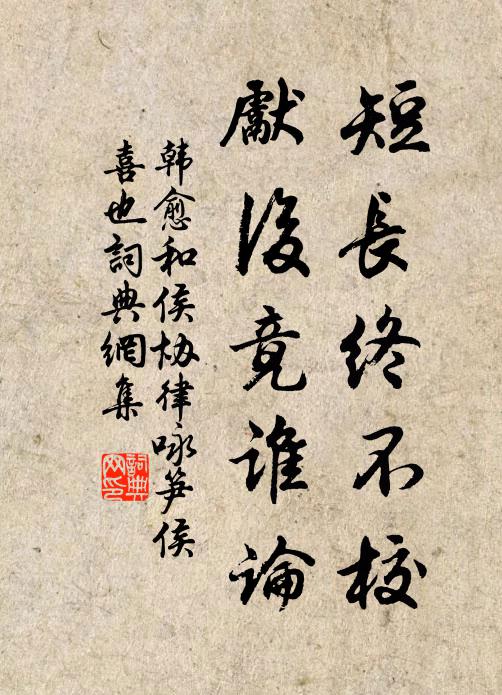 短長終不校
獻後竟誰論
韩愈和侯协律咏笋侯
喜也詞典網集
詞典
网印